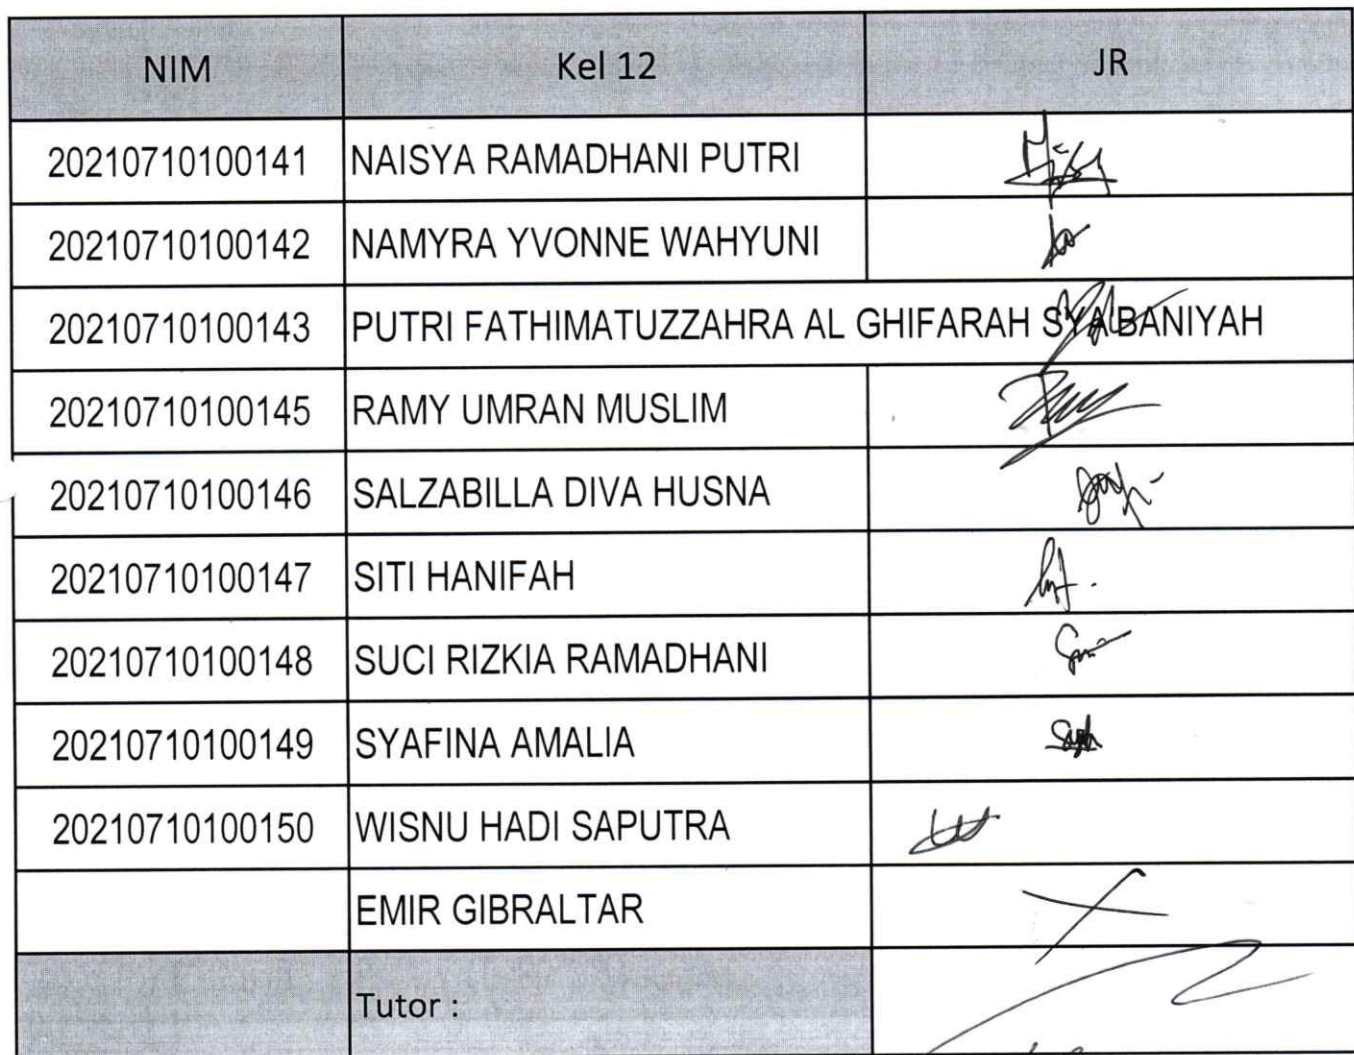 NIM Kel 12 JR
20210710100141 NAISYA RAMADHANI PUTRI
20210710100142 NAMYRA YVONNE WAHYUNI
20210710100143 PUTRI FATHIMATUZZAHRA AL GHIFARAH SYA'BANIYAH
20210710100145 RAMY UMRAN MUSLIM
20210710100146 SALZABILLA DIVA HUSNA
20210710100147 SITI HANIFAH
20210710100148 SUCI RIZKIA RAMADHANI
20210710100149 SYAFINA AMALIA
20210710100150 WISNU HADI SAPUTRA
EMIR GIBRALTAR
Tutor :